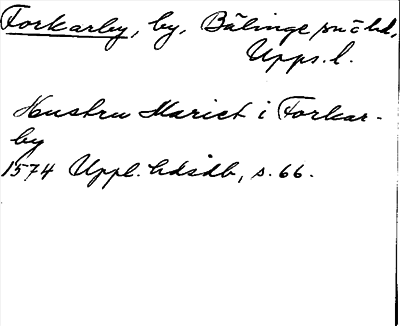 Forkarby, by, Bälinge sn o hd,
Upps. l.
Hustru Mariet i Forkar-
by
1574 Uppl. hdsdb, s. 66.